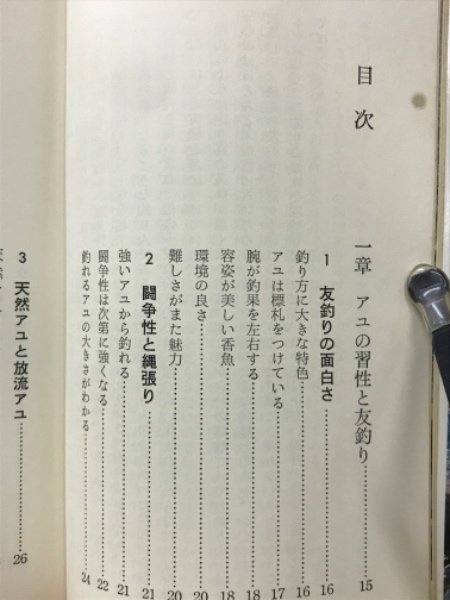 目次
一章 アユの習性と友釣り……15
1 友釣りの面白さ……16
釣り方に大きな特色……16
アユは標札をつけている……17
腕が釣果を左右する……18
容姿が美しい香魚……18
環境の良さ……20
難しさがまた魅力……20
2 闘争性と縄張り……21
強いアユから釣れる……21
闘争性は次第に強くなる……22
釣れるアユの大きさがわかる……24
3 天然アユと放流アユ……26